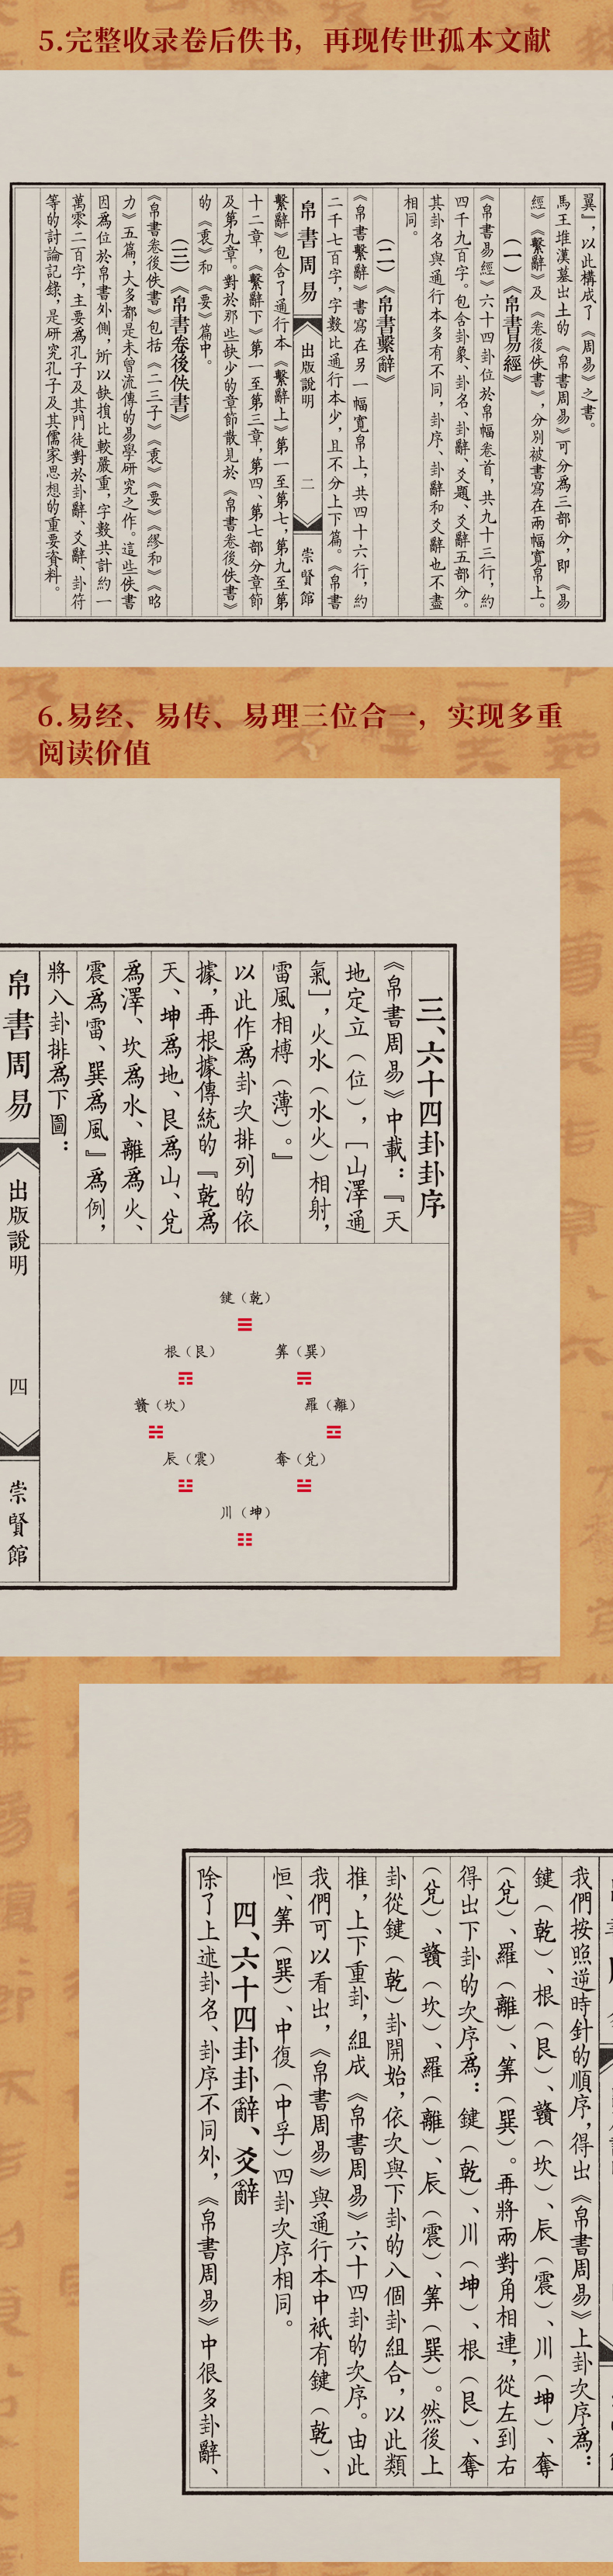 5.完整收录卷后佚书，再现传世孤本文献
翼』，以此構成了《周易》之書。
馬王堆漢墓出土的《帛書周易》可分爲三部分，即《易
經》《繫辭》及《卷後佚書》，分別被書寫在兩幅寬帛上。
（一）《帛書易經》
《帛書易經》六十四卦位於帛幅卷首，共九十三行，約
四千九百字。包含卦象、卦名、卦辭、爻題、爻辭五部分。
其卦名與通行本多有不同，卦序、卦辭和爻辭也不盡
相同。
（二）《帛書繫辭》
《帛書繫辭》書寫在另一幅寬帛上，共四十六行，約
二千七百字，字數比通行本少，且不分上下篇。《帛書
帛書周易
出版說明
二
崇賢館
繫辭》包含了通行本《繫辭上》第一至第七，第九至第
十二章，《繫辭下》第一至第三章，第四、第七部分章節
及第九章。對於那些缺少的章節散見於《帛書卷後佚書》
的《衷》和《要》篇中。
（三）《帛書卷後佚書》
《帛書卷後佚書》包括《二三子》《衷》《要》《繆和》《昭
力》五篇，大多都是未曾流傳的易學研究之作。這些佚書
因爲位於帛書外側，所以缺損比較嚴重，字數共計約一
萬零二百字，主要爲孔子及其門徒對於卦辭、爻辭、卦符
等的討論記錄，是研究孔子及其儒家思想的重要資料。
6.易经、易传、易理三位合一，实现多重
阅读价值
三、六十四卦卦序
《帛書周易》中載：『天
地定立（位），［山澤通
氣］，火水（水火）相射，
雷風相榑（薄）。』
以此作爲卦次排列的依
據，再根據傳統的『乾爲
天、坤爲地、艮爲山、兌
爲澤、坎爲水、離爲火、
震爲雷、巽爲風』爲例，
將八卦排爲下圖：
鍵（乾）
根（艮）
筭（巽）
贛（坎）
羅（離）
辰（震）
奪（兌）
川（坤）
帛書周易
出版說明
四
崇賢館
我們按照逆時針的順序，得出《帛書周易》上卦次序爲：
鍵（乾）、根（艮）、贛（坎）、辰（震）、川（坤）、奪
（兌）、羅（離）、筭（巽）。再將兩對角相連，從左到右
得出下卦的次序爲：鍵（乾）、川（坤）、根（艮）、奪
（兌）、贛（坎）、羅（離）、辰（震）、筭（巽）。然後上
卦從鍵（乾）卦開始，依次與下卦的八個卦組合，以此類
推，上下重卦，組成《帛書周易》六十四卦的次序。由此
我們可以看出，《帛書周易》與通行本中衹有鍵（乾）、
恒、筭（巽）、中復（中孚）四卦次序相同。
四、六十四卦卦辭、爻辭
除了上述卦名、卦序不同外，《帛書周易》中很多卦辭、